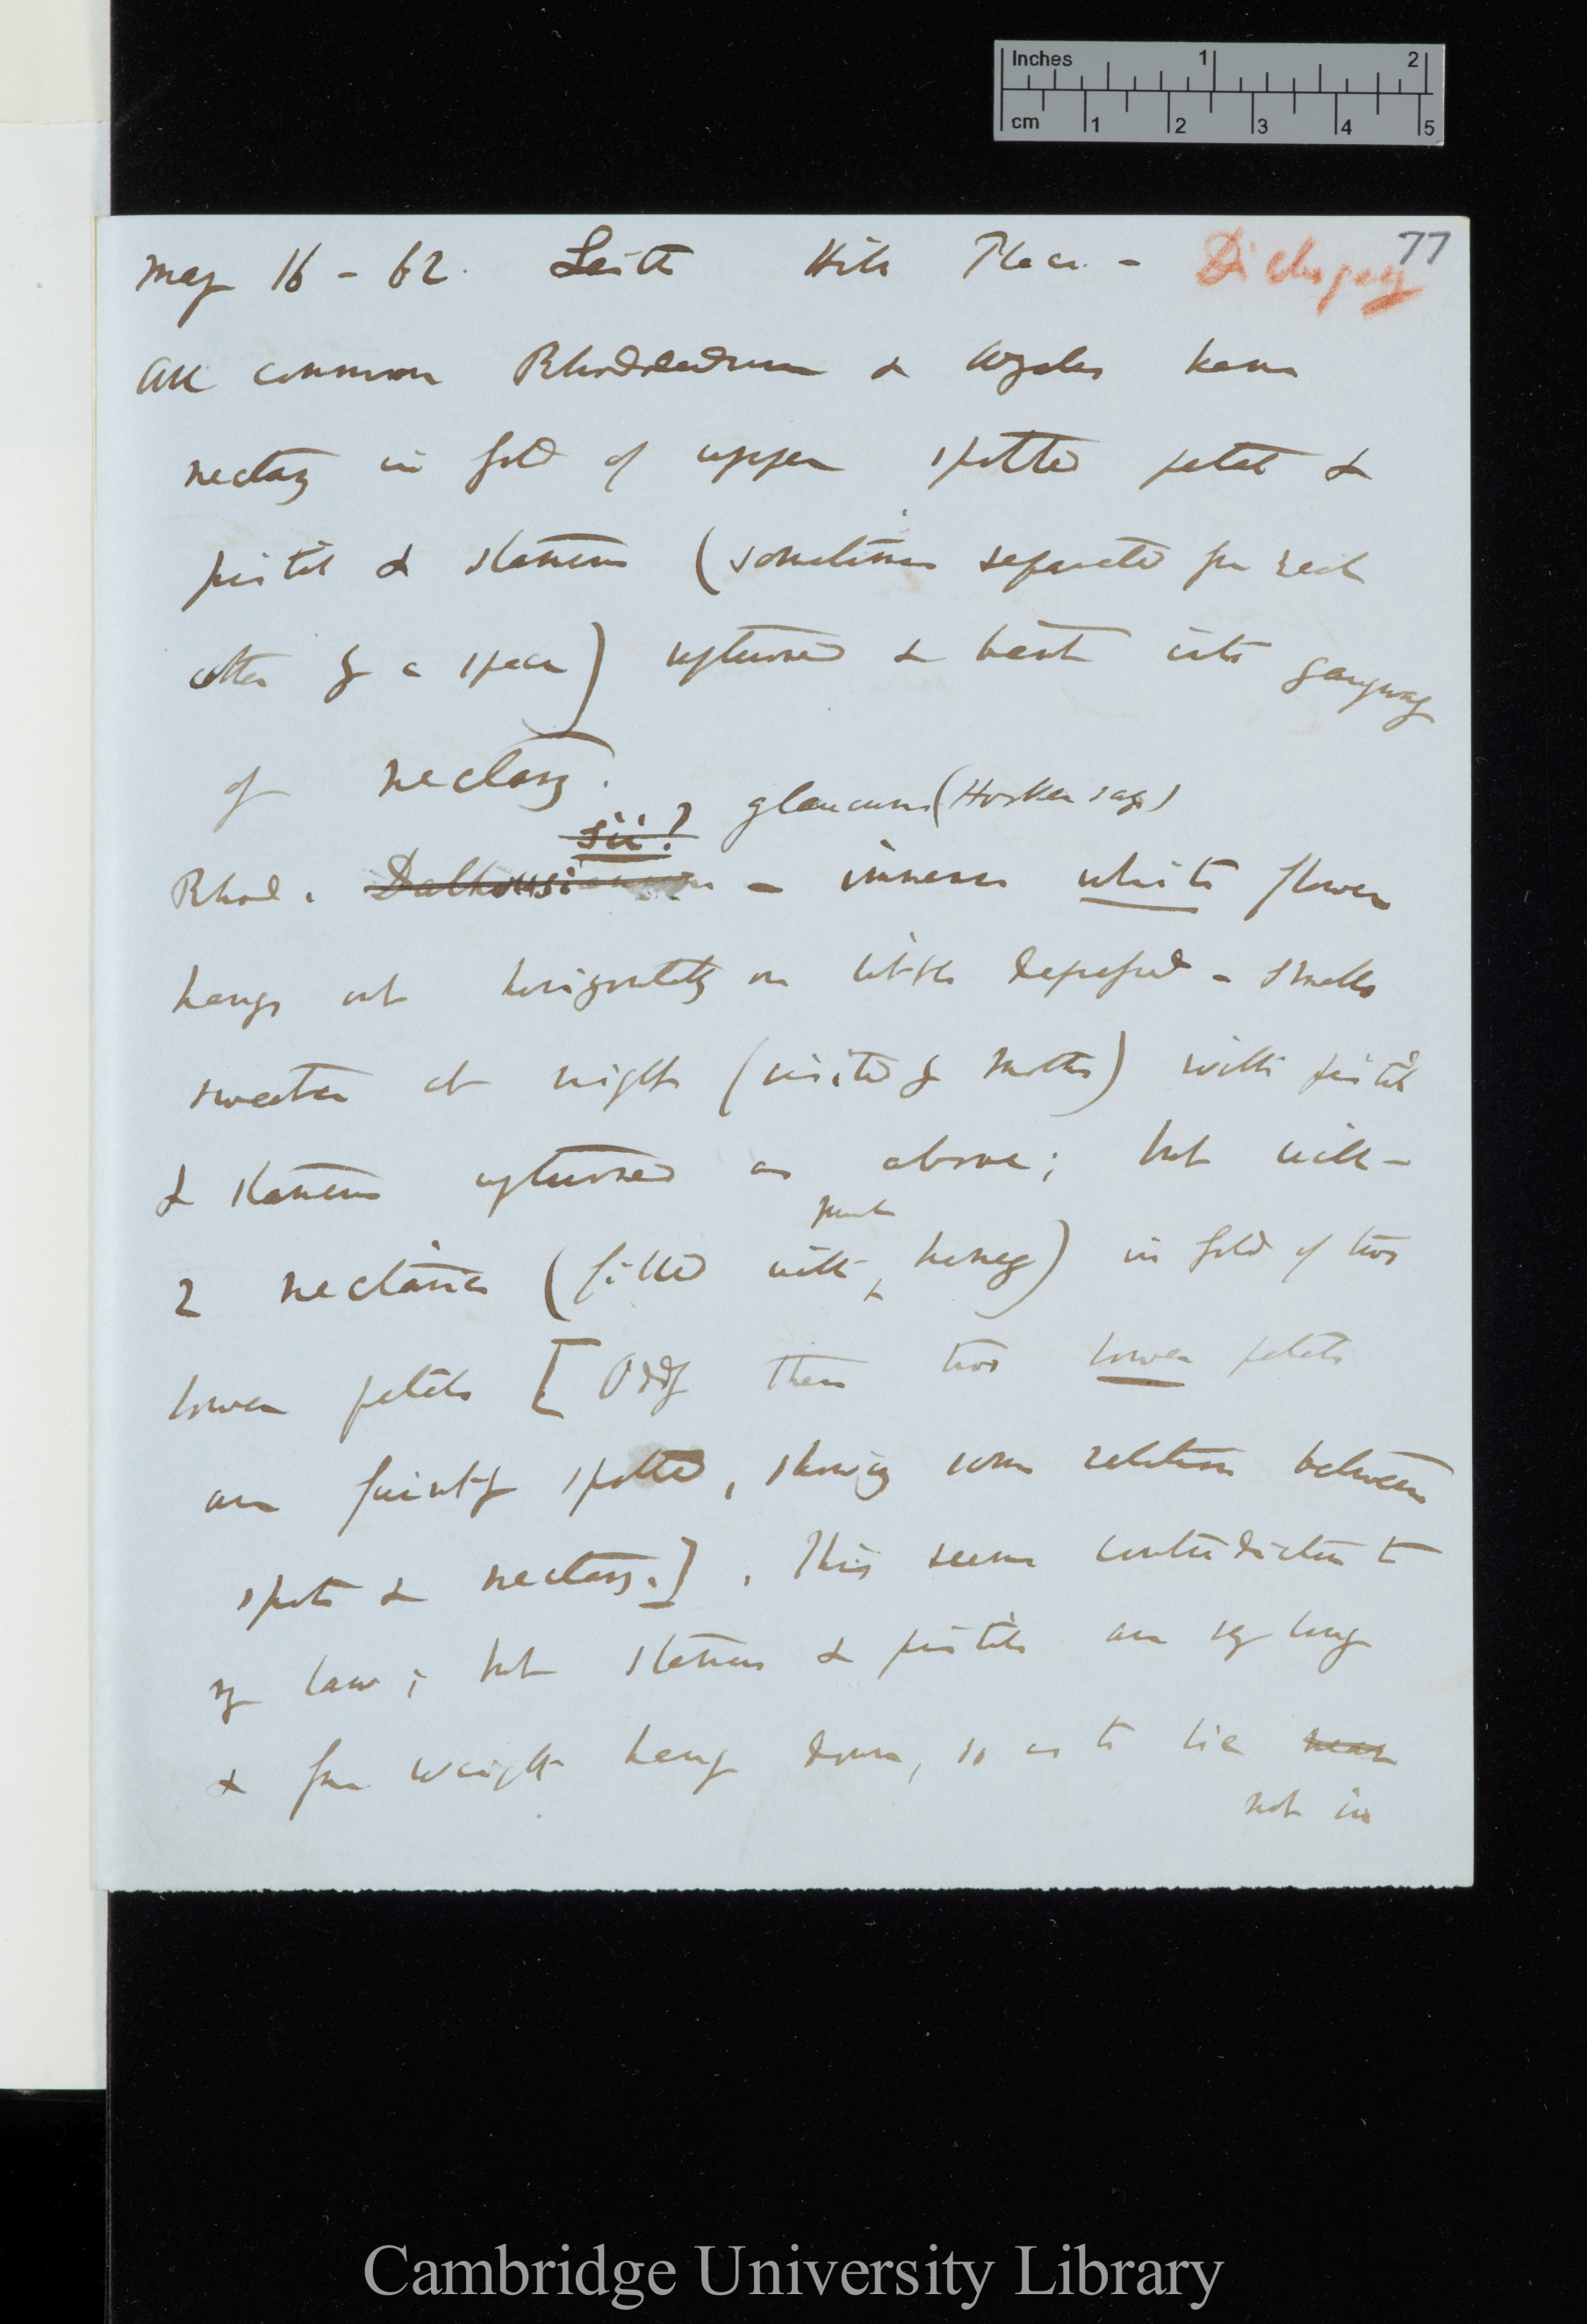 Inches 1 2
cm 1 2 3 4 5
77
May 16 - 62. Leith Hill Place. - Dichogamy
All common Rhododendrum & Azalea have
nectary in fold of upper spotted petal &
pistil & stamens (sometimes separated from each
other by a space) upturned & bent into gangway
of nectary.
sii? glaucum (Hooker says)
Rhod. Dalhousianum - immense white flower
hangs out horizontally or little depressed - smells
sweeter at night (visited by moths) with pistil
& stamens upturned as above; but with -
much
2 nectaries (filled with honey) in fold of two
lower petals [Oddly these two lower petals
are faintly spotted, showing some relation between
spots & nectary.]. This seems contradiction to
my law; but stamens & pistils are so long
& from weight hang down, so as to lie near
not in
Cambridge University Library